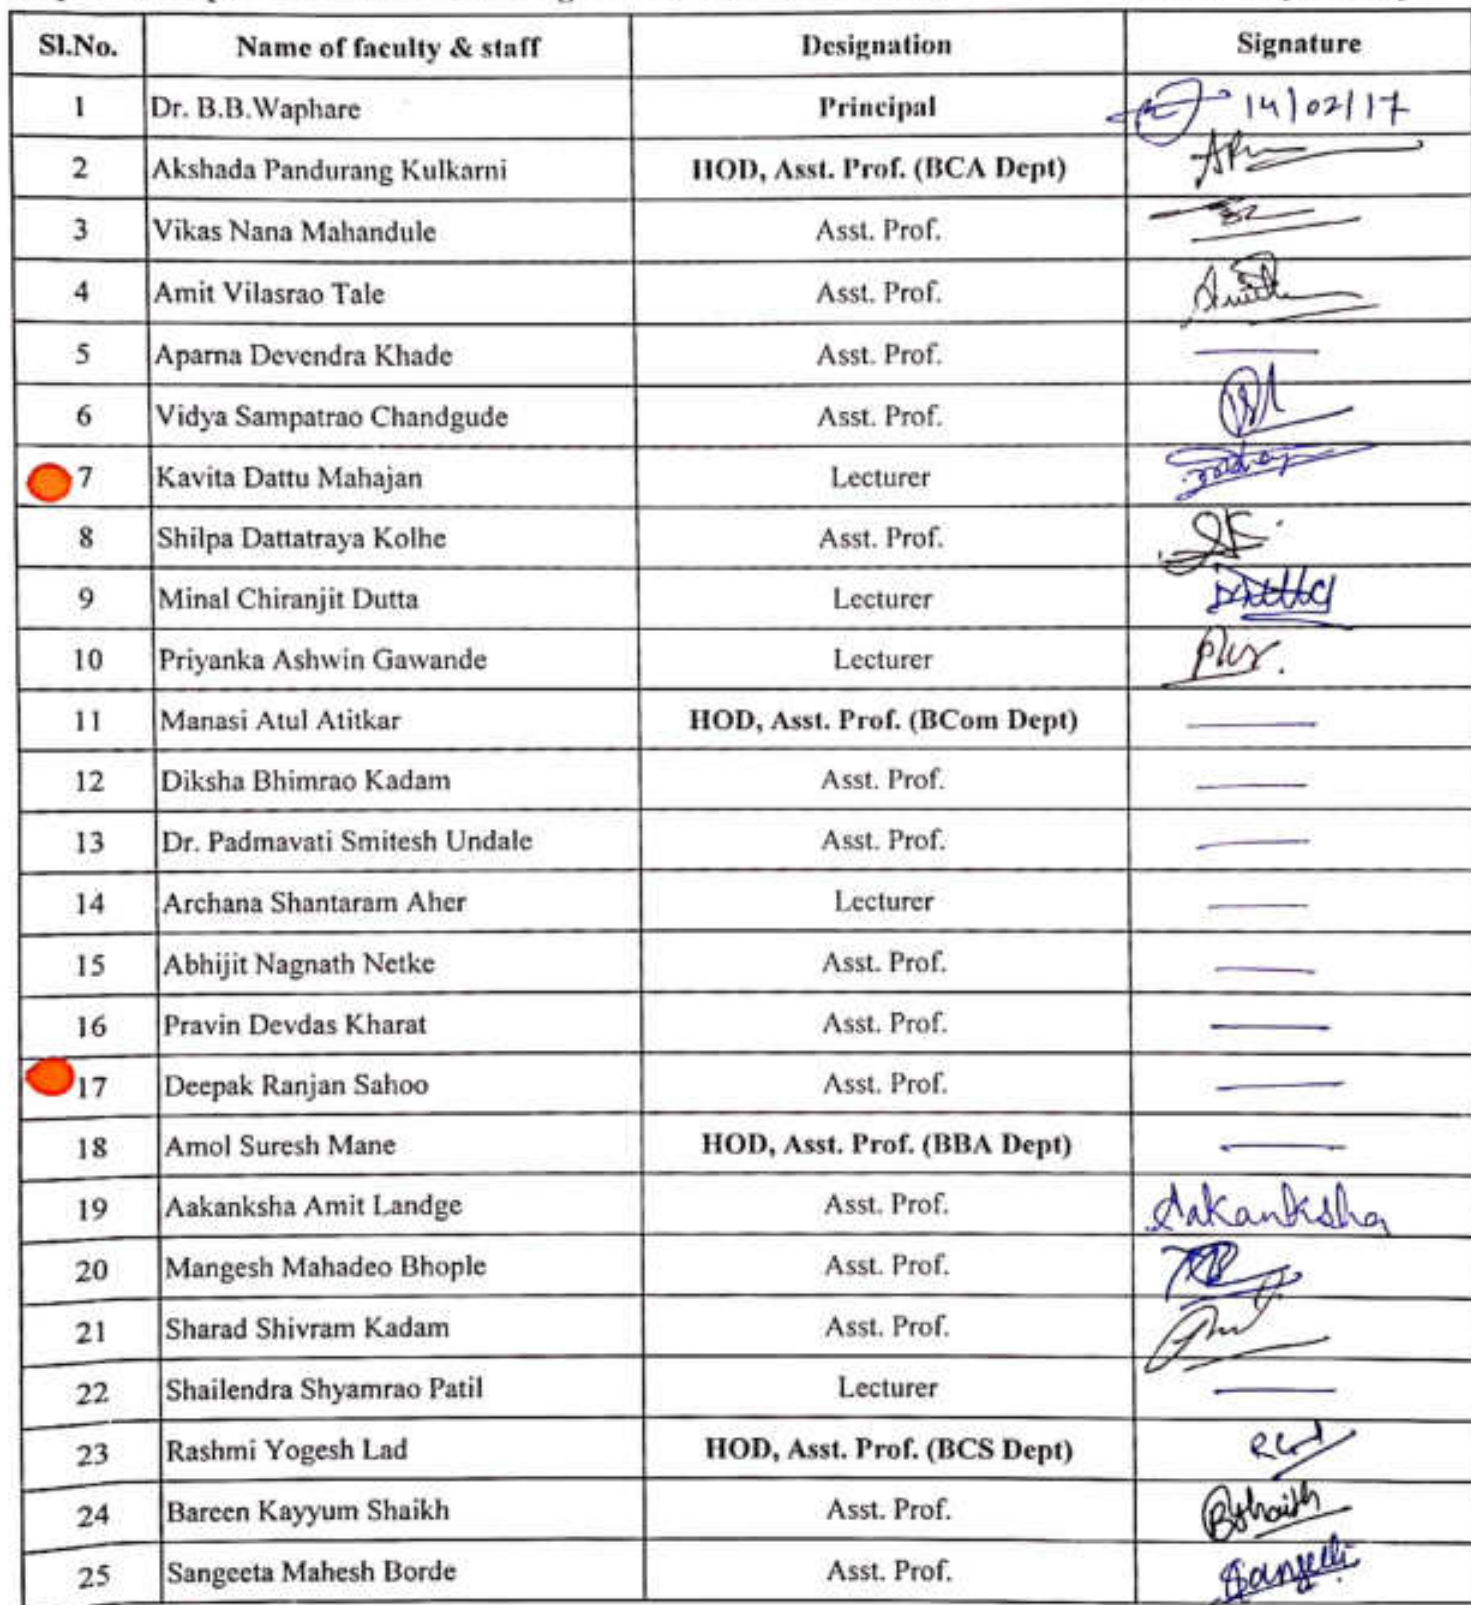 Sl.No. Name of faculty & staff Designation Signature
1 Dr. B.B.Waphare Principal 14/02/17
2 Akshada Pandurang Kulkarni HOD, Asst. Prof. (BCA Dept)
3 Vikas Nana Mahandule Asst. Prof.
4 Amit Vilasrao Tale Asst. Prof.
5 Aparna Devendra Khade Asst. Prof. —
6 Vidya Sampatrao Chandgude Asst. Prof.
7 Kavita Dattu Mahajan Lecturer
8 Shilpa Dattatraya Kolhe Asst. Prof.
9 Minal Chiranjit Dutta Lecturer
10 Priyanka Ashwin Gawande Lecturer
11 Manasi Atul Atitkar HOD, Asst. Prof. (BCom Dept) —
12 Diksha Bhimrao Kadam Asst. Prof. —
13 Dr. Padmavati Smitesh Undale Asst. Prof. —
14 Archana Shantaram Aher Lecturer —
15 Abhijit Nagnath Netke Asst. Prof. —
16 Pravin Devdas Kharat Asst. Prof. —
17 Deepak Ranjan Sahoo Asst. Prof. —
18 Amol Suresh Mane HOD, Asst. Prof. (BBA Dept) —
19 Aakanksha Amit Landge Asst. Prof. Aakanksha
20 Mangesh Mahadeo Bhople Asst. Prof.
21 Sharad Shivram Kadam Asst. Prof.
22 Shailendra Shyamrao Patil Lecturer —
23 Rashmi Yogesh Lad HOD, Asst. Prof. (BCS Dept)
24 Bareen Kayyum Shaikh Asst. Prof. BShaikh
25 Sangeeta Mahesh Borde Asst. Prof.